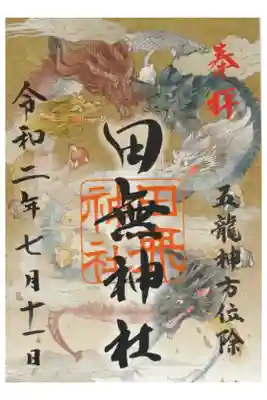 奉拝
五龍神方位除
田無神社
田無神社
令和二年七月十一日